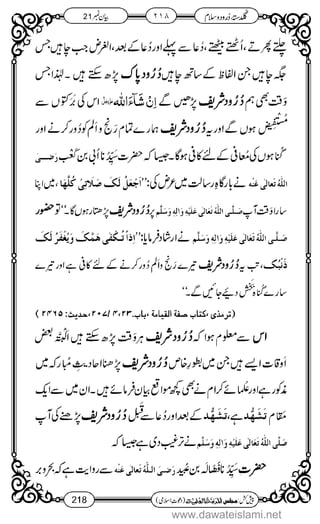 گلدستۂ دُرود و سلام ۲۱۸ بیان نمبر 21
چلتے پھرتے ، اُٹھتے بیٹھتے، دُعا سے پہلے اور دُعا کے بعد، الغرض جب چاہیں جس
جگہ چاہیں جن الفاظ کے ساتھ چاہیں دُرُودِ پاک پڑھ سکتے ہیں۔ لہٰذا جس
وَقْت بھی ہم دُرُودِ شریف پڑھیں گے اِنْ شَآءَ اللہ اس کی بَرَکتوں سے
مُسْتَفِیْض ہوں گے اور یہ دُرُودِ شریف ہمارے تمام رَنج و اَلَم کو دُور کرنے اور
گُناہوں کی مُعافی کے لئے کافی ہوگا۔ جیسا کہ حضرتِ سَیِّدُنا اُبی بن کَعْب رَضِیَ
اللہُ تَعَالٰی عَنْہُ نے بارگاہِ رسالت میں عرض کی: ’’اَجْعَلُ لَکَ صَلَاتِیْ کُلَّھَا ، میں اپنا
سارا وَقت آپ صَلَّی اللہُ تَعَالٰی عَلَیْہِ وَاٰلِہٖ وَسَلَّم پر دُرُودِ شریف پڑھتا رہوں گا۔‘‘ تو حضور
صَلَّی اللہُ تَعَالٰی عَلَیْہِ وَاٰلِہٖ وَسَلَّم نے ارشاد فرمایا: ’’اِذًا تُکْفٰی ھَمَّکَ وَیُغْفَرُ لَکَ
ذَنْبُکَ، تب یہ دُرُودِ شریف تیرے رَنج و اَلَم دُور کرنے کے لئے کافی ہے اور تیرے
سارے گناہ بَخْش دیئے جائیں گے۔‘‘
(ترمذی ،کتاب صفۃ القیامۃ ،باب۲۳، ۴/۲۰۷، حدیث: ۲۴۶۵ )
اس سے معلوم ہوا کہ دُرُودِ شریف ہر وَقت پڑھ سکتے ہیں اَلْبَتَّہ بعض
اَوقات ایسے ہیں جن میں بطورِ خاص دُرُودِ شریف پڑھنا احادیثِ مُبارکہ میں
مذکور ہے اور عُلمائے کرام نے بھی کچھ مواقع بیان فرمائے ہیں۔ ان میں سے ایک
مَقام تَشَہُّد ہے، تَشَہُّد کے بعد اور دُعا سے قَبْل دُرُودِ شریف پڑھنے کی آپ
صَلَّی اللہُ تَعَالٰی عَلَیْہِ وَاٰلِہٖ وَسَلَّم نے ترغیب دی ہے جیسا کہ
حضرتِ سَیِّدُنا فَضَالَہ بن عُبَید رَضِیَ اللہُ تَعَالٰی عَنْہُ سے روایت ہے کہ بحر و بر
218
www.dawateislami.net